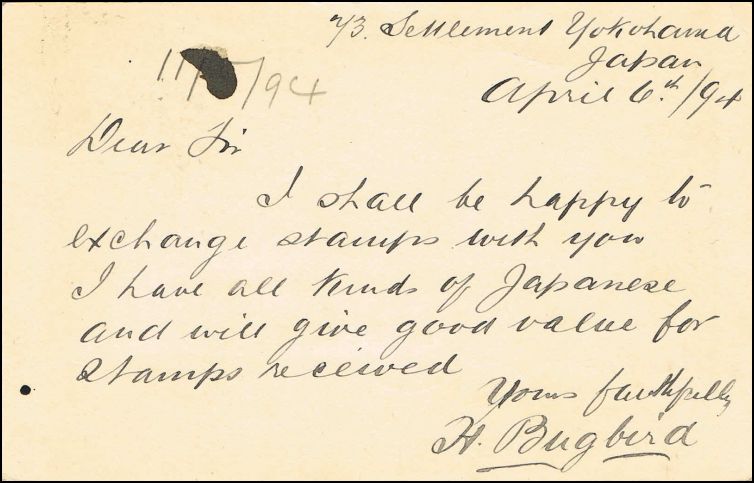 73. Settlement Yokohama
Japan
April 6.th/94
11/ /94
Dear Sir
I shall be happy to
exchange stamps with you
I have all kinds of Japanese
and will give good value for
stamps received
Yours faithfully
H. Bugbird